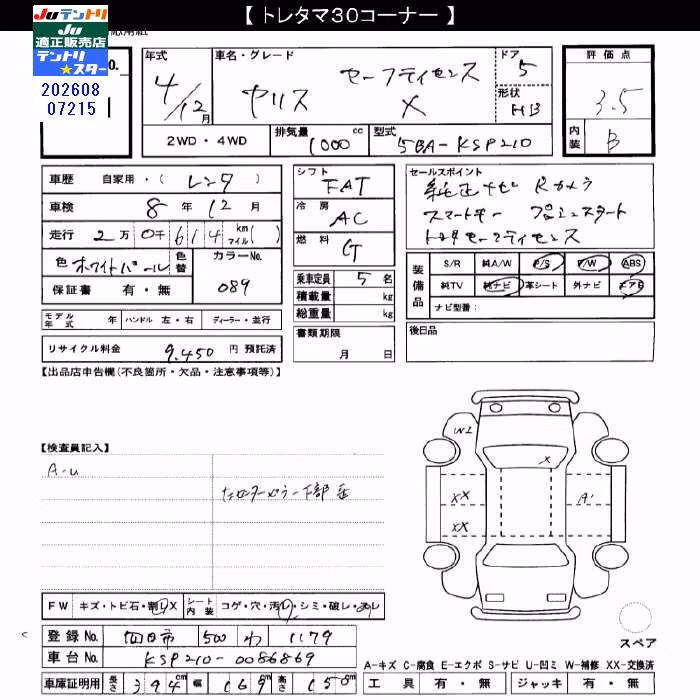 【 トレタマ30コーナー 】
Juテントリ
Ju
適正販売店
テントリ
★スター
No.
202608
07215
年式 車名・グレード ドア 評価点
4/12月 ヤリス セーフティセンス X 5 3.5
形状 HB
内装 B
2WD・4WD 排気量 1000 cc 型式 5BA-KSP210
車歴 自家用・( レンタ )
車検 8年 12月
走行 2万 0千 6 1 4 km マイル( )
色 ホワイトパール 色替 カラーNo. 089
保証書 有・無
モデル年式 年 ハンドル 左・右 ディーラー・並行
リサイクル料金 9,450 円 預託済
シフト FAT
冷房 AC
燃料 G
乗車定員 5 名
積載量 kg
総重量 kg
書類期限
月 日
セールスポイント
純正ナビ Rカメラ
スマートキー プッシュスタート
トヨタセーフティセンス
装備品 S/R 純A/W P/S P/W ABS
純TV 純ナビ 革シート 外ナビ エアB
ナビ型番:
後日品
【出品店申告欄(不良箇所・欠品・注意事項等)】
【検査員記入】
A-U
下部
W1
X
XX
XX
A1
FW キズ・トビ石・割レX シート内装 コゲ・穴・汚レ・シミ・破レ・スレ
登録No. 四日市 500 わ 1179
車台No. KSP210-0086869
車庫証明用 長さ 394cm 幅 169cm 高さ 150cm
スペア
A-キズ C-腐食 E-エクボ S-サビ U-凹ミ W-補修 XX-交換済
工具 有・無 ジャッキ 有・無